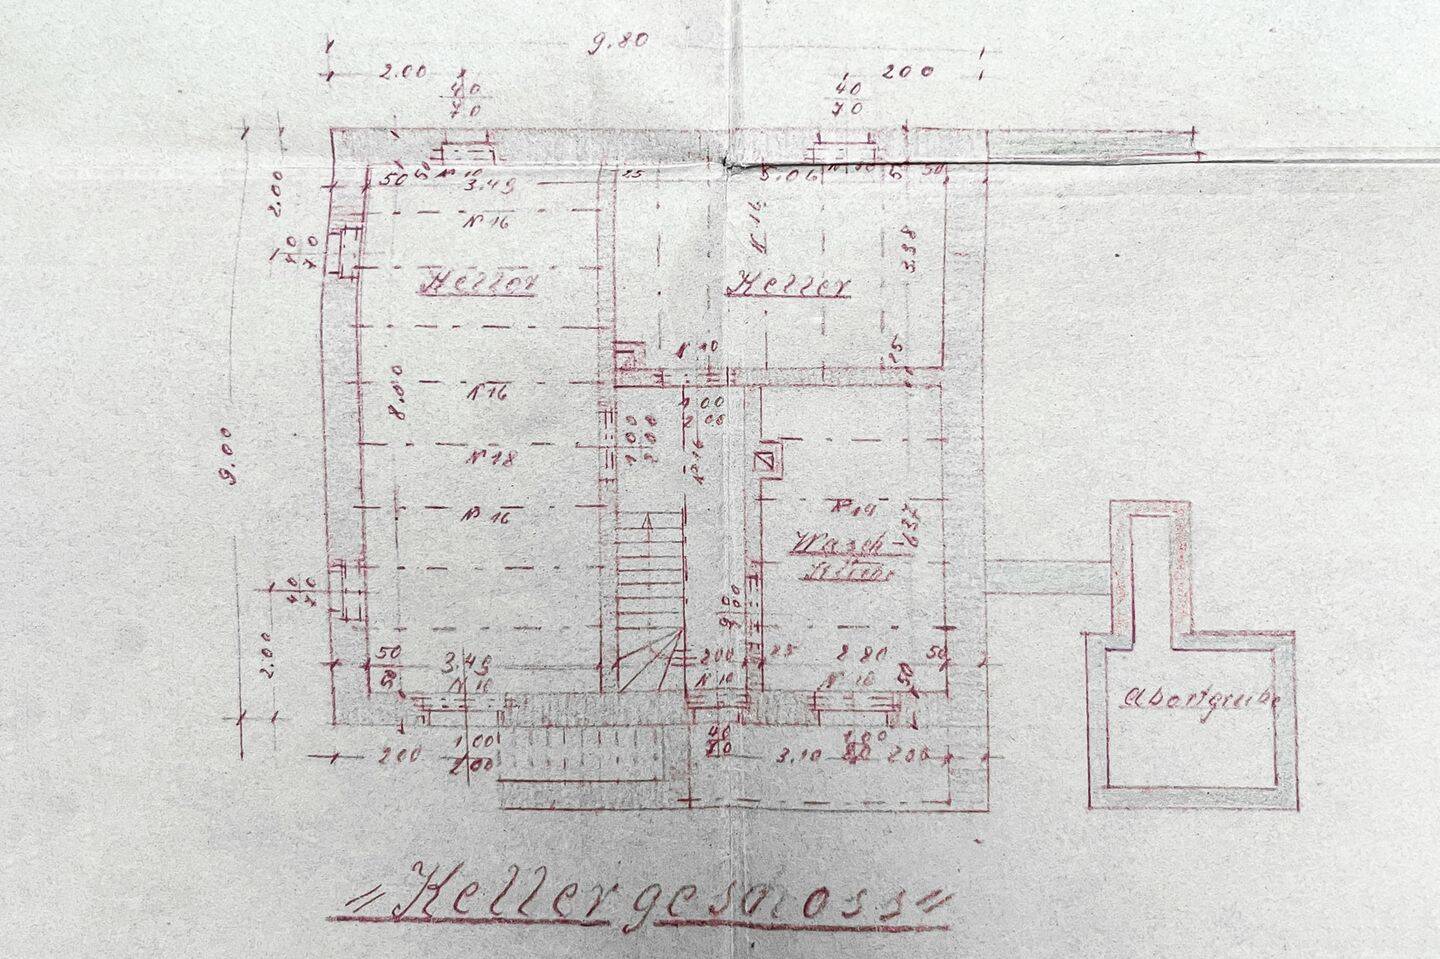 9.80
2.00
200
40
70
40
70
50
50
N 10
3.49
25
5.06
50
2.00
N 16
N 16
3.38
40
70
Keller
Keller
25
N 10
N 16
8.00
1 00
2 00
1 00
2 00
N 16
N 18
9.00
N 16
N 14
6.37
Wasch-
40
70
9 0
2.00
50
3.49
200
25
2 80
50
50
N 10
N 10
N 10
50
200
1 00
2 00
40
70
3.10
1.00
200
Abortgrube
"Kellergeschoss"